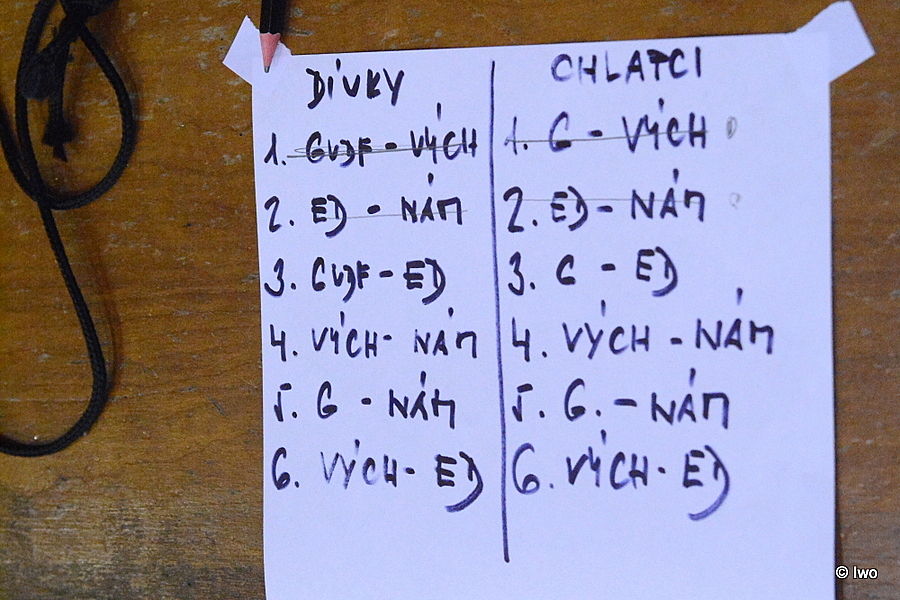 DÍVKY
1. GVJF - VÝCH
2. ED - NÁM
3. GVJF - ED
4. VÝCH - NÁM
5. G - NÁM
6. VÝCH - ED
CHLAPCI
1. G - VÝCH
2. ED - NÁM
3. G - ED
4. VÝCH - NÁM
5. G. - NÁM
6. VÝCH - ED
© Iwo